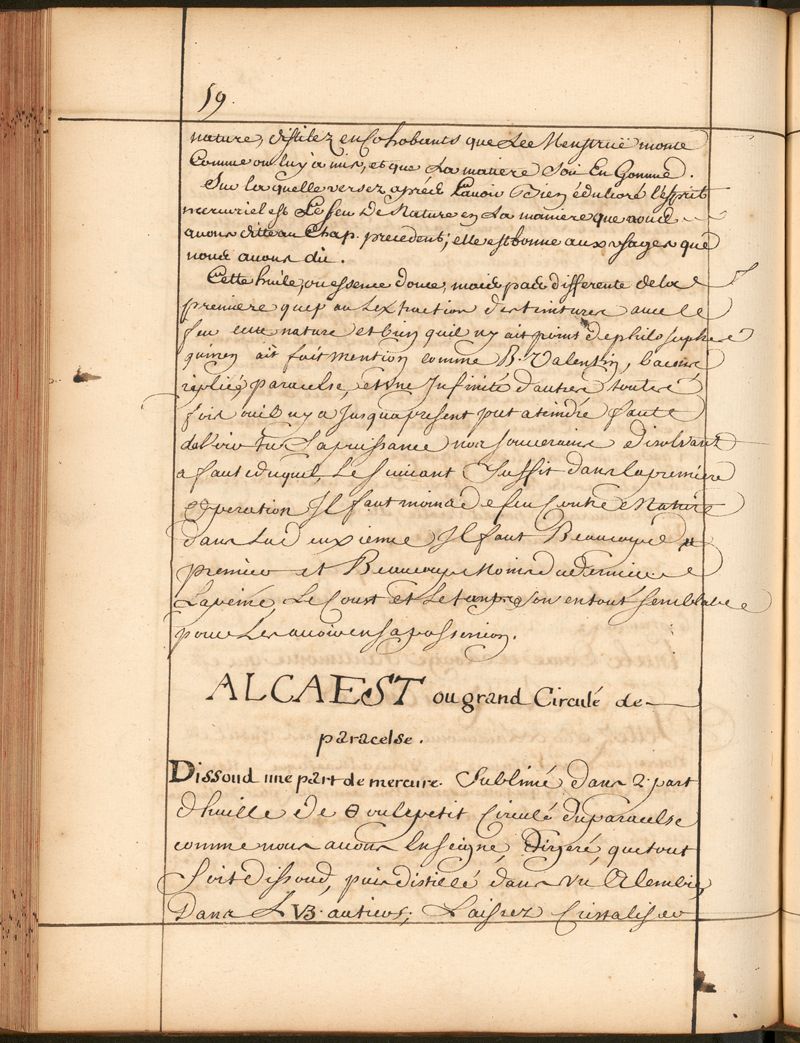 59.
nature, distilez en Cohobants que Lee Menstruë monte
Comme on luy a mis, et que La matiere Soit En Gomme.
Sur laquelle versez apréé Lavoir Bien édulcoré l'esprit
mercuriel est Le feu De Nature en La maniere que noud
avons ditte au Chap. precedent; elle est bonne aux usages que
noud avons dit.
Cette huile, ou essence douce, maid pad differente de la
premiere que par L'extraction des teintures avec le
feu nature et bien quil ny ait point de philosophe
qui nen ait fait mention comme B. Valentin,
paracelse, et une Infinité d'autres toute
fois ouil ny a Jusqua present put ateindre faute
Sa puissance nos souverains disolvant
a faut duquel, Le Suivant Suffit dans la premiere
opperation Il faut moind de feu Contre Nature
dans La deuxieme Il faut Beaucoup du
premier et Beaucoup Moins du dernier
La peine, Le Court et Le temps Son en tout semblable
pour Les avoir en sa possession.
ALCAEST ou grand Circulé de
paracelse.
Dissoud une part de mercure. Sublimé dans 2. part
d'huille de ϴ ou le petit Circulé du paracelse
comme nous avons Enseigné, Digeré, que tout
Soit dissoud, puis distillé dans un Alembic
Dans L VB. antiers; Laissez Cristaliser